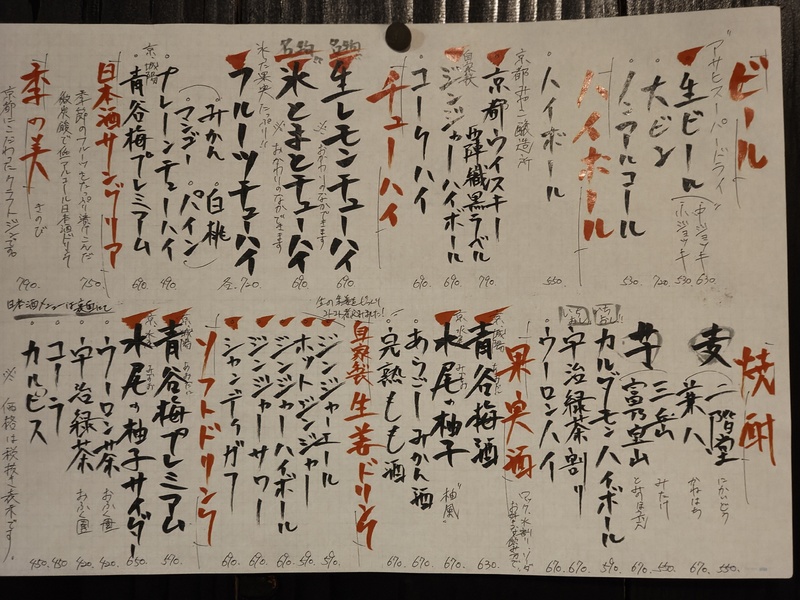 ビール
"アサヒスーパードライ"
生ビール
中ジョッキ 630
小ジョッキ 530
大ビン 720
ノンアルコール 530
ハイボール
ハイボール 550
京都みやこ醸造所
京都ウイスキー
西陣織黒ラベル 790
自家製
ジンジャーハイボール 690
コークハイ 690
チューハイ
名物
生レモンチューハイ 690
※おかわりのなかできます
名物
氷とまとチューハイ 690
※おかわりのなかできます
フルーツチューハイ 各720
氷た果実たっぷり!!
みかん 白桃
マンゴー パイン
プレーンチューハイ 490
京・城陽
青谷梅プレミアム 690
日本酒サングリア 750
季節のフルーツをたっぷり漬けこんだ
微炭酸で低アルコール日本酒ドリンク
季の美 きのび 790
京都にこだわったクラフトジンです。
日本酒メニューは裏面にて
焼酎
麦
二階堂 にかいどう 550
兼八 かねはち 670
芋
三岳 みたけ 550
富乃宝山 とみのほうざん 670
カルダモンハイボール 590
宇治緑茶割り 670
ウーロンハイ 670
果実酒
ロック、水割り、ソーダ
お好みでお飲み下さい
京・城陽
青谷梅酒 630
京・水尾
水尾の柚子 "柚風" 670
あらごしみかん酒 670
完熟もも酒 670
自家製生姜ドリンク
ジンジャーエール 590
ホットジンジャー 590
ジンジャーハイボール 690
ジンジャーサワー 690
シャンディガフ 690
ソフトドリンク
京・城陽
青谷梅プレミアム 590
京・水尾
水尾の柚子サイダー 650
ウーロン茶 おふく園 420
宇治緑茶 おふく園 420
コーラ 450
カルピス 450
※価格は税抜き表示です。